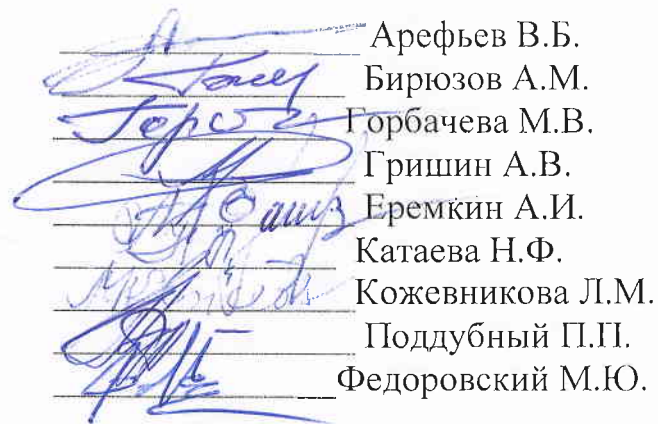 Арефьев В.Б.
Бирюзов А.М.
Горбачева М.В.
Гришин А.В.
Еремкин А.И.
Катаева Н.Ф.
Кожевникова Л.М.
Поддубный П.П.
Федоровский М.Ю.